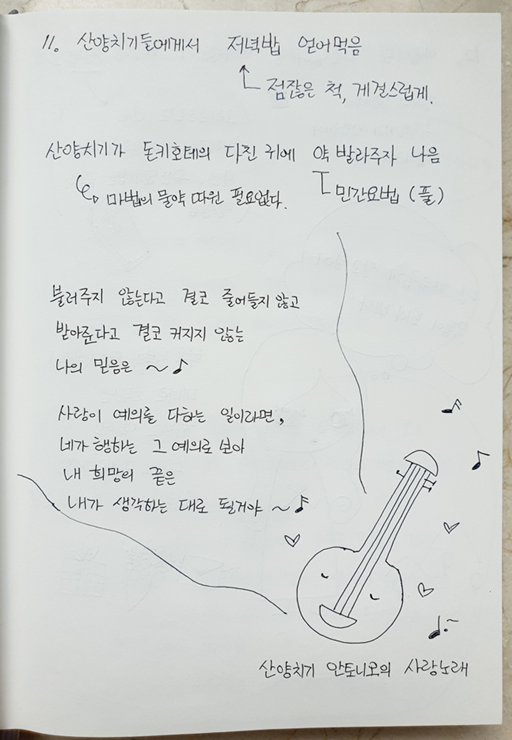 11. 산양치기들에게서 저녁밥 얻어먹음
점잖은 척, 게걸스럽게.
산양치기가 돈키호테의 다친 귀에 약 발라주자 나음
마법의 물약 따윈 필요없다.
민간요법 (풀)
불러주지 않는다고 결코 줄어들지 않고
받아준다고 결코 커지지 않는
나의 믿음은 ~♪
사랑이 예의를 다하는 일이라면,
네가 행하는 그 예의로 보아
내 희망의 끝은
내가 생각하는 대로 될거야 ~♪
산양치기 안토니오의 사랑노래